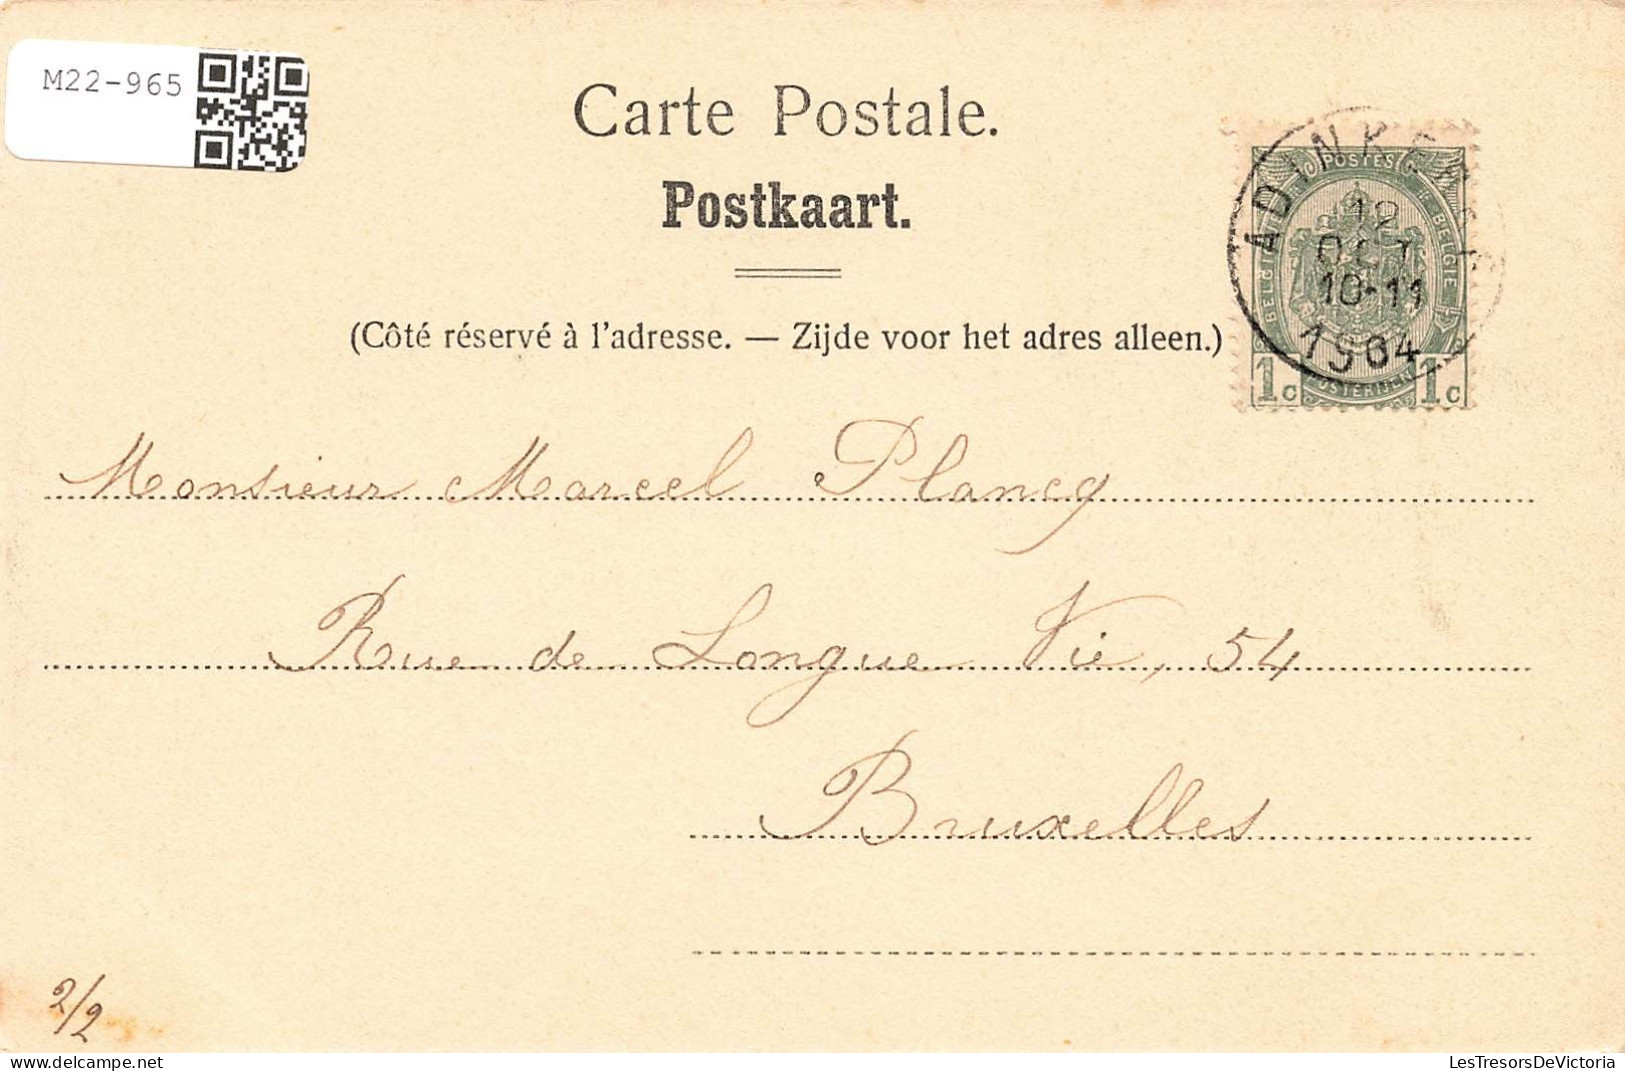 M22-965
Carte Postale.
Postkaart.
(Côté réservé à l'adresse. — Zijde voor het adres alleen.)
POSTES
BELGIQUE BELGIE
ADINKERKE
12
OCT
10-11
1904
1c POSTERIJEN 1c
Monsieur Marcel Plancq
Rue de Longue Vie, 54
Bruxelles
2/2
delcampe.net
LesTresorsDeVictoria